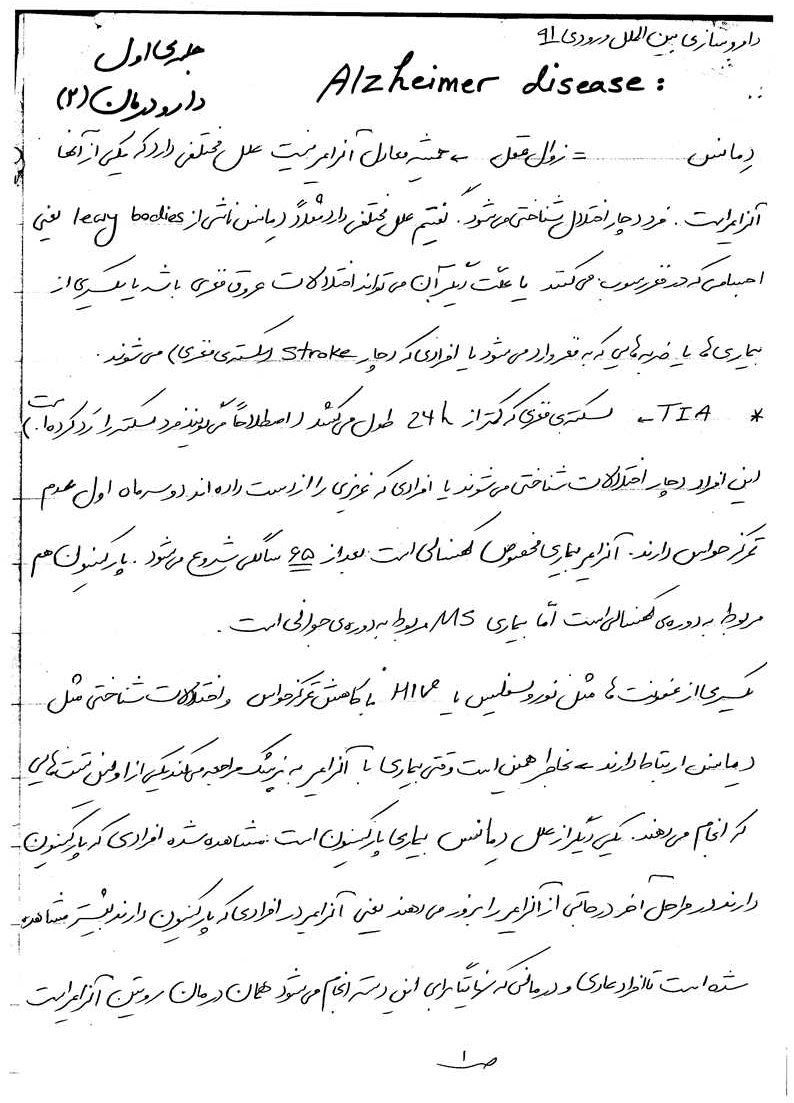 داروسازی بین الملل ورودی ۹۱
جلسه‌ی اول
Alzheimer disease :
دارو درمان (۲)
دمانس = زوال عقل ← همیشه معادل آلزایمر نیست علل مختلفی دارد که یکی از آنها
آلزایمر است. فرد دچار اختلال شناختی می‌شود. گفتیم علل مختلفی دارد مثلاً دمانس ناشی از lewy bodies یعنی
اجسامی که در مغز رسوب می‌کنند یا علت دیگر آن می‌تواند اختلالات عروق مغزی باشد یا یکسری از
بیماری‌ها یا ضربه‌هایی که به مغز وارد می‌شود یا افرادی که دچار stroke (سکته‌ی مغزی) می‌شوند.
* TIA ← سکته‌ی مغزی که کمتر از 24h طول می‌کشد (اصطلاحاً می‌گویند فرد سکته را رد کرده است.)
این افراد دچار اختلالات شناختی می‌شوند یا افرادی که عزیزی را از دست داده اند دو سه ماه اول عدم
تمرکز حواس دارند. آلزایمر بیماری مخصوص کهنسالی است بعد از ۶۵ سالگی شروع می‌شود. پارکینسون هم
مربوط به دوره‌ی کهنسالی است اما بیماری MS مربوط به دوره‌ی جوانی است.
یکسری از عفونت ها مثل نوروسفلیس یا HIV با کاهش تمرکز حواس و اختلالات شناختی مثل
دمانس ارتباط دارند ← بخاطر همین است وقتی بیماری با آلزایمر به پزشک مراجعه می‌کند یکی از اولین تست‌هایی
که انجام می‌دهند. یکی دیگر از علل دمانس بیماری پارکینسون است. مشاهده شده افرادی که پارکینسون
دارند در مراحل آخر درجاتی از آلزایمر را بروز می‌دهند یعنی آلزایمر در افرادی که پارکینسون دارند بیشتر مشاهده
شده است تا افراد عادی و درمانی که نهایتاً برای این دسته انجام می‌شود همان درمان روتین آلزایمر است
ص ۱